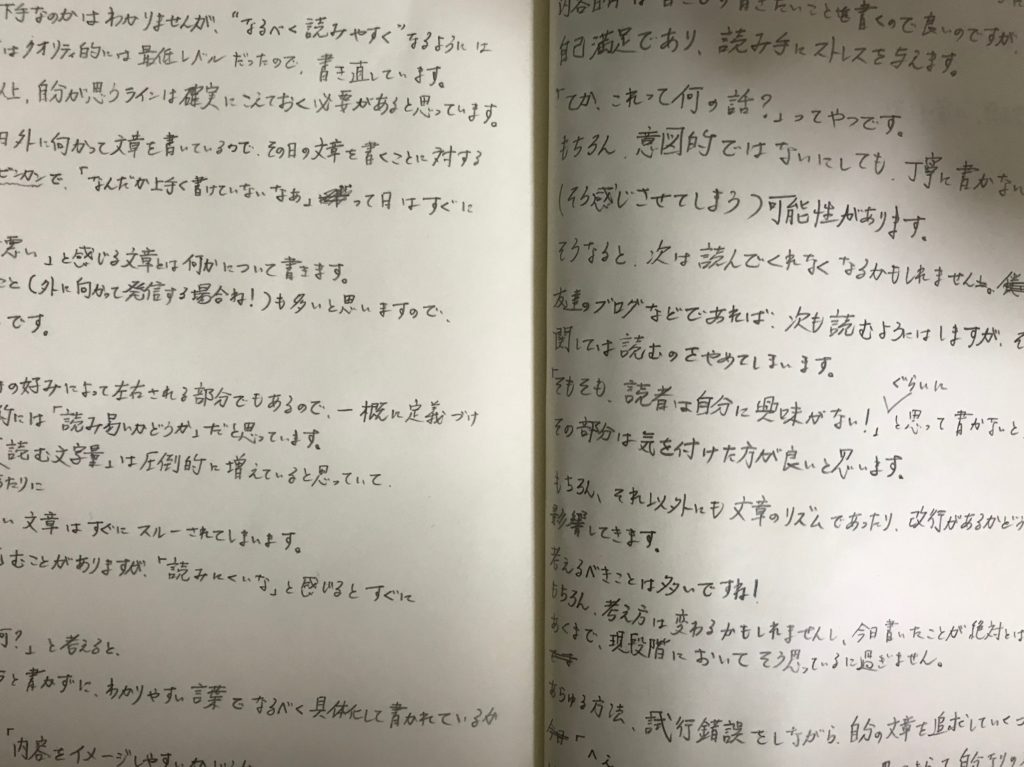 下手なのかはわかりませんが、“なるべく読みやすく”なるようには
はクオリティ的には最低レベルだったので、書き直しています。
以上、自分が思うラインは確実にこえておく必要があると思っています。
日外に向かって文章を書いているので、その日の文章を書くことに対する
ビンカンで、「なんだか上手く書けていないなぁ」って日はすぐに
悪い」と感じる文章とは何かについて書きます。
こと(外に向かって発信する場合ね!)も多いと思いますので、
です。
の好みによって左右される部分でもあるので、一概に定義づけ
的には「読み易いかどうか」だと思っています。
「読む文字量」は圧倒的に増えていると思っていて、
たりに
い文章はすぐにスルーされてしまいます。
むことがありますが、「読みにくいな」と感じるとすぐに
何?」と考えると、
と書かずに、わかりやすい言葉でなるべく具体化して書かれているか
「内容をイメージしやすいか
書くので良いのですが、
自己満足であり、読み手にストレスを与えます。
「てか、これって何の話?」ってやつです。
もちろん、意図的ではないにしても、丁寧に書かない
(そう感じさせてしまう)可能性があります。
そうなると、次は読んでくれなくなるかもしれません。
友達のブログなどであれば、次も読むようにはしますが、そ
関しては読むのをやめてしまいます。
ぐらいに
「そもそも、読者は自分に興味がない!」と思って書かないと、
その部分は気を付けた方が良いと思います。
もちろん、それ以外にも文章のリズムであったり、改行があるかどう
影響してきます。
考えるべきことは多いですね!
もちろん、考え方は変わるかもしれませんし、今日書いたことが絶対とは
あくまで、現段階においてそう思っているに過ぎません。
あらゆる方法、試行錯誤をしながら、自分の文章を追求していく
「へぇ